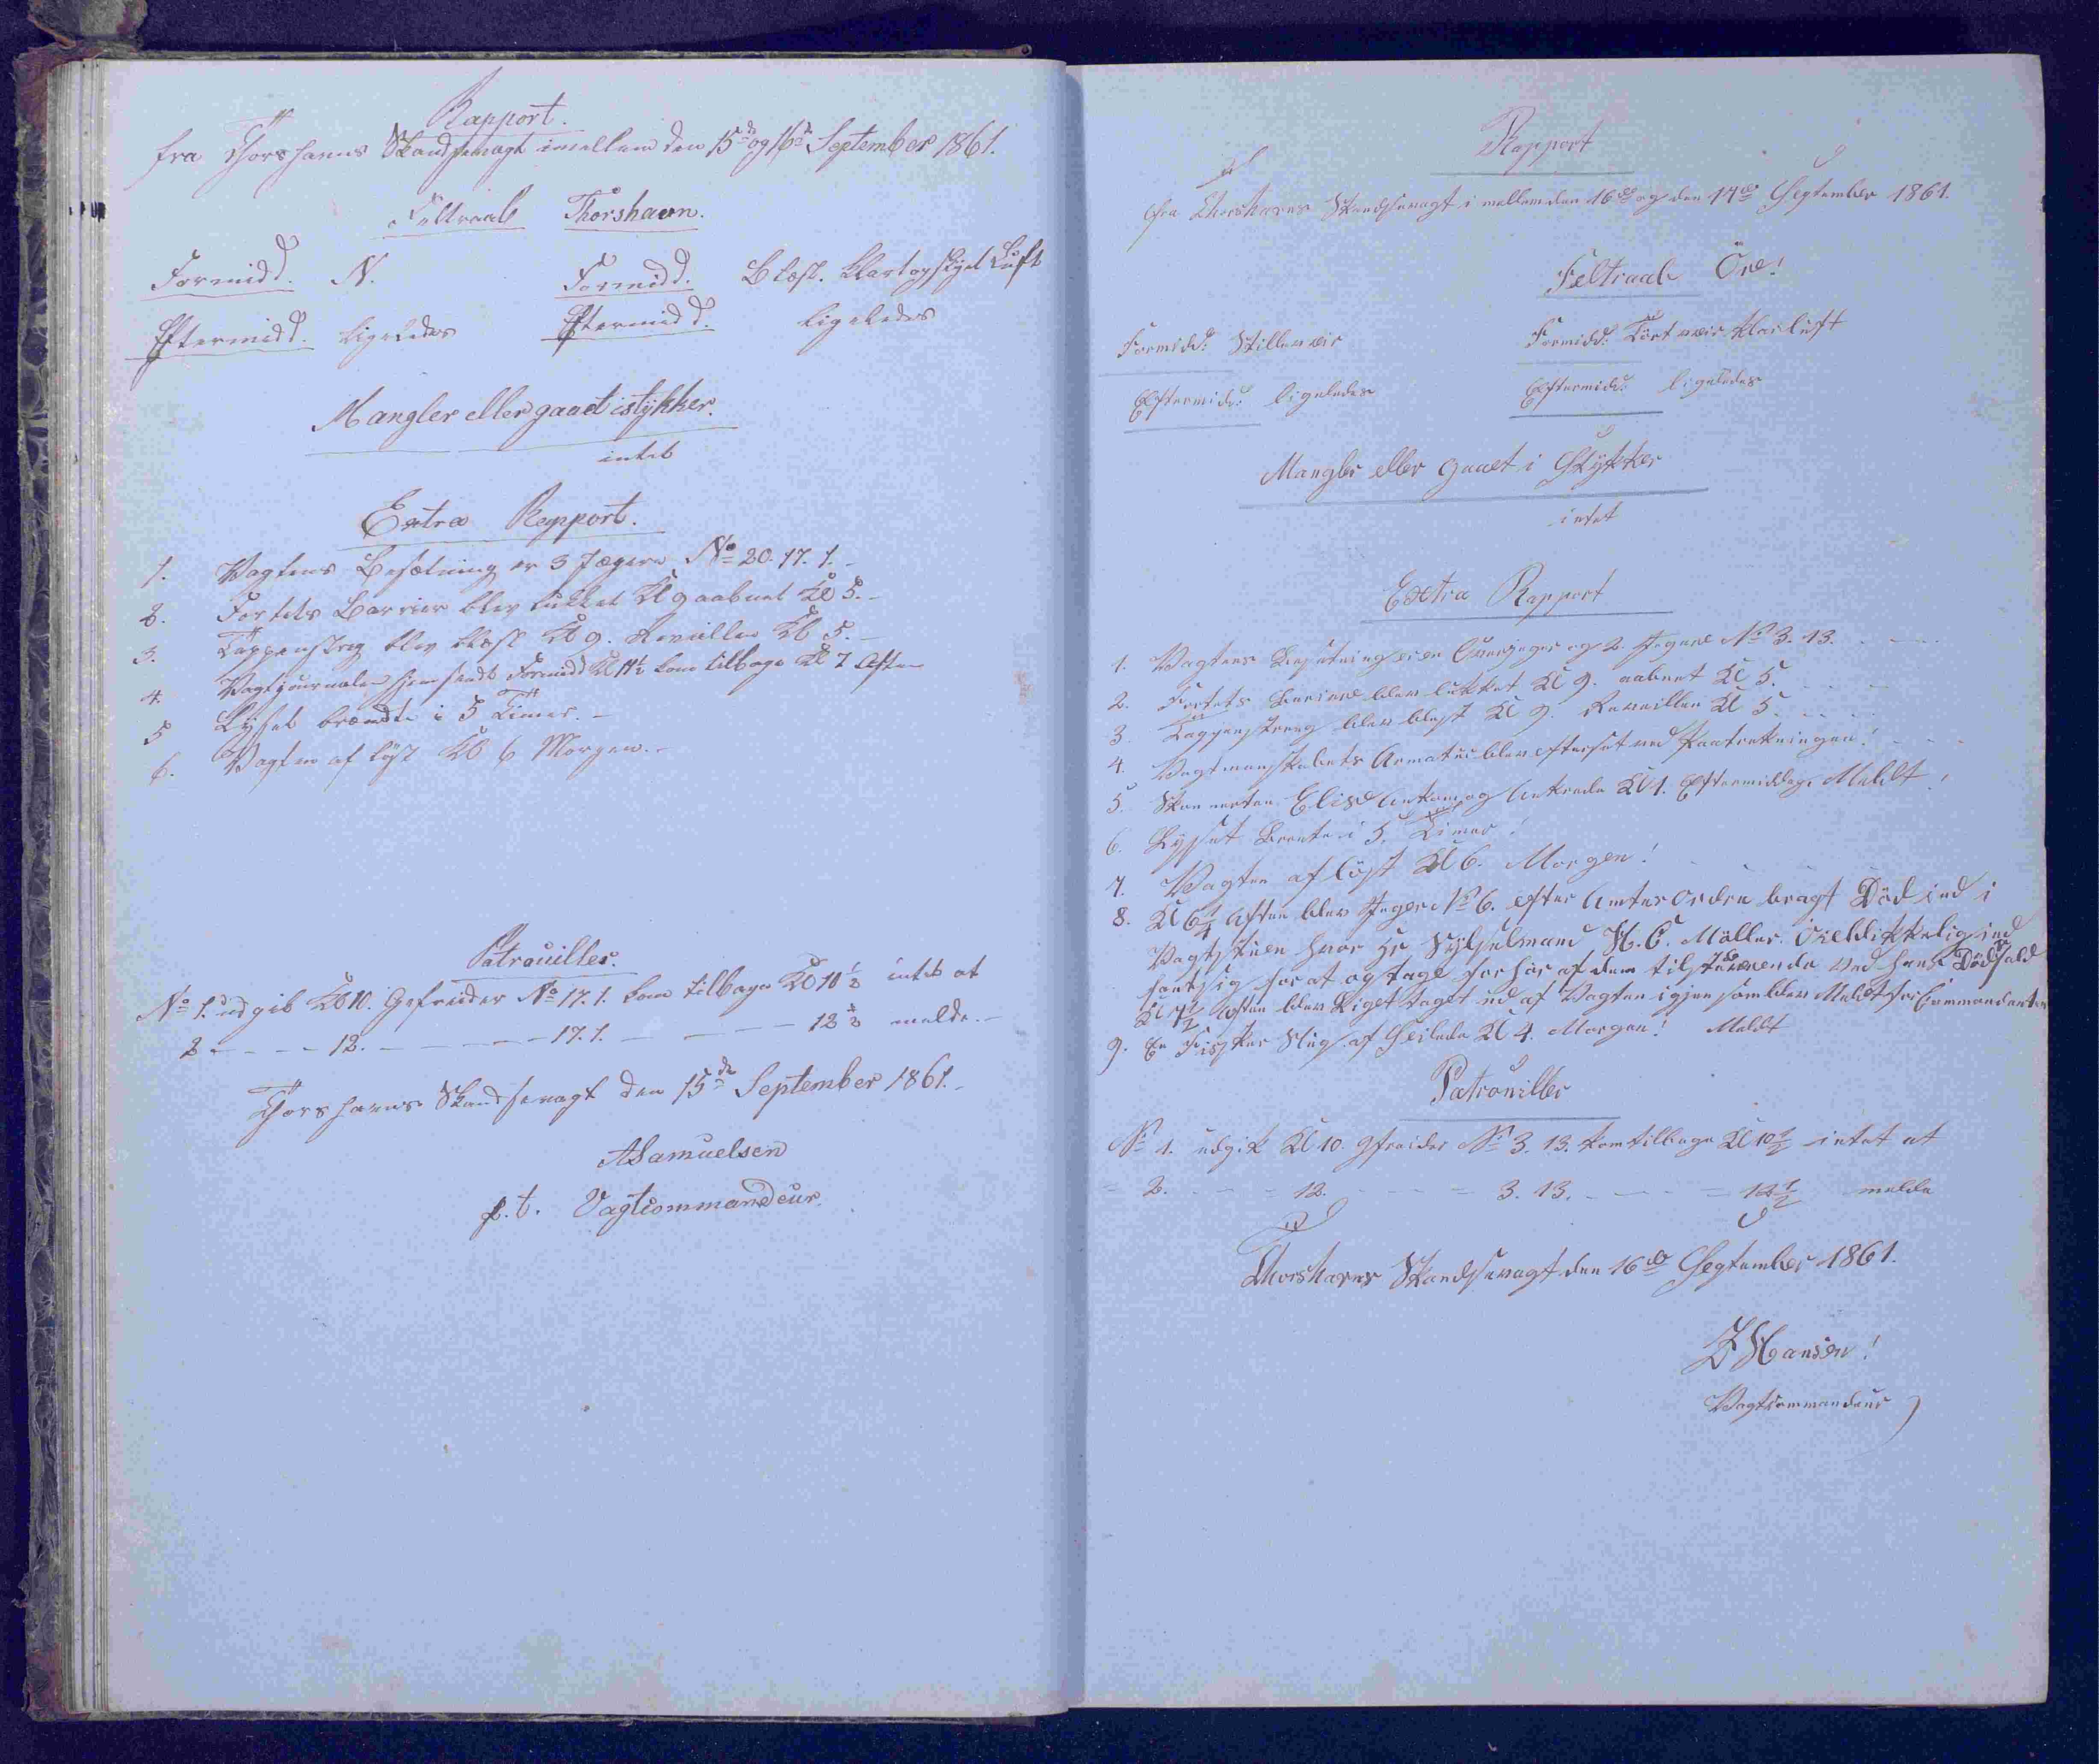 Rapport.
fra Thorshavns Skandsevagt imellem den 15de og 16de September 1861.
Feltraab Thorshavn.
Formidd. N. Formidd. Blæst. Klart og skyet Luft
Eftermidd. ligeledes Eftermidd. ligeledes
Mangler eller gaaet istykker.
intet
Extra Rapport.
1. Vagtens Besætning er 3 Jægere No 20. 17. 1.
2. Fortets Barrier blev lukket Kl 9 aabnet Kl 5.
3. Tappenstreg blev blæst Kl 9. Reveillen Kl 5.
4. Vagtjournalen hjemsendt Formidd Kl 11½ kom tilbage Kl 7 Aften
5 Lyset brændte i 5 Timer.
6. Vagten afløst Kl 6 Morgen.
Patrouiller.
No 1. udgik Kl 10. Gefreider No 17. 1. kom tilbage Kl 10½ intet at
2 - - - - 12. - - - - 17. 1. - - - - 12½ melde.
Thorshavns Skandsevagt den 15de September 1861.
ASamuelsen
p.t. Vagtcommandeur.
Rapport
fra Thorshavns Skandsevagt i mellem den 16de og den 17de September 1861.
Feltraab Öre!
Formidd: Stilleveir Formidd: Tört veir Klar luft
Eftermidd: ligeledes Eftermidd: ligeledes
Mangler eller gaaet i Stÿkker
intet
Extra Rapport
1. Vagtens Besetning er en Overjeger og 2. Jegere No 3. 13.
2. Fortets Bariere blev lukket Kl 9. aabnet Kl 5.
3. Tappenstreeg blev blest Kl 9. Reveillen Kl 5.
4. Vagtmanskabets Armatur blev efterset ved Paatredningen!
5. Skonnerten Elise Ankom og Ankrede Kl 1. Eftermiddag. Meldt!
6. Lyset Brente i 5. Timer!
7. Vagten aflöst Kl 6. Morgen!
8. Kl 6¼ Aften blev Jeger No 6. efter Amtes Ordre bragt Död ind i
Vagtstuen hvor Hr Sÿsselmand H. C. Möller. Öieblikkelig ind
fant sig for at optage forhör af dem tilstedeverende ved hans Dödsfald
Kl 7½ Aften blev Liget taget ud af Vagten igjen som blev Meldt for Commandanten
9. En Fisker Slup af Seilede Kl 4. Morgen! Meldt
Patrouiller
No 1. udgik Kl 10. Gfreider No 3. 13. kom tilbage Kl 10½ intet at
= 2. - - = 12. - - - = 3. 13. - - - = 12½ melde
Thorshavns Skandsevagt den 16de September 1861.
Hansen!
Vagtcommandeur